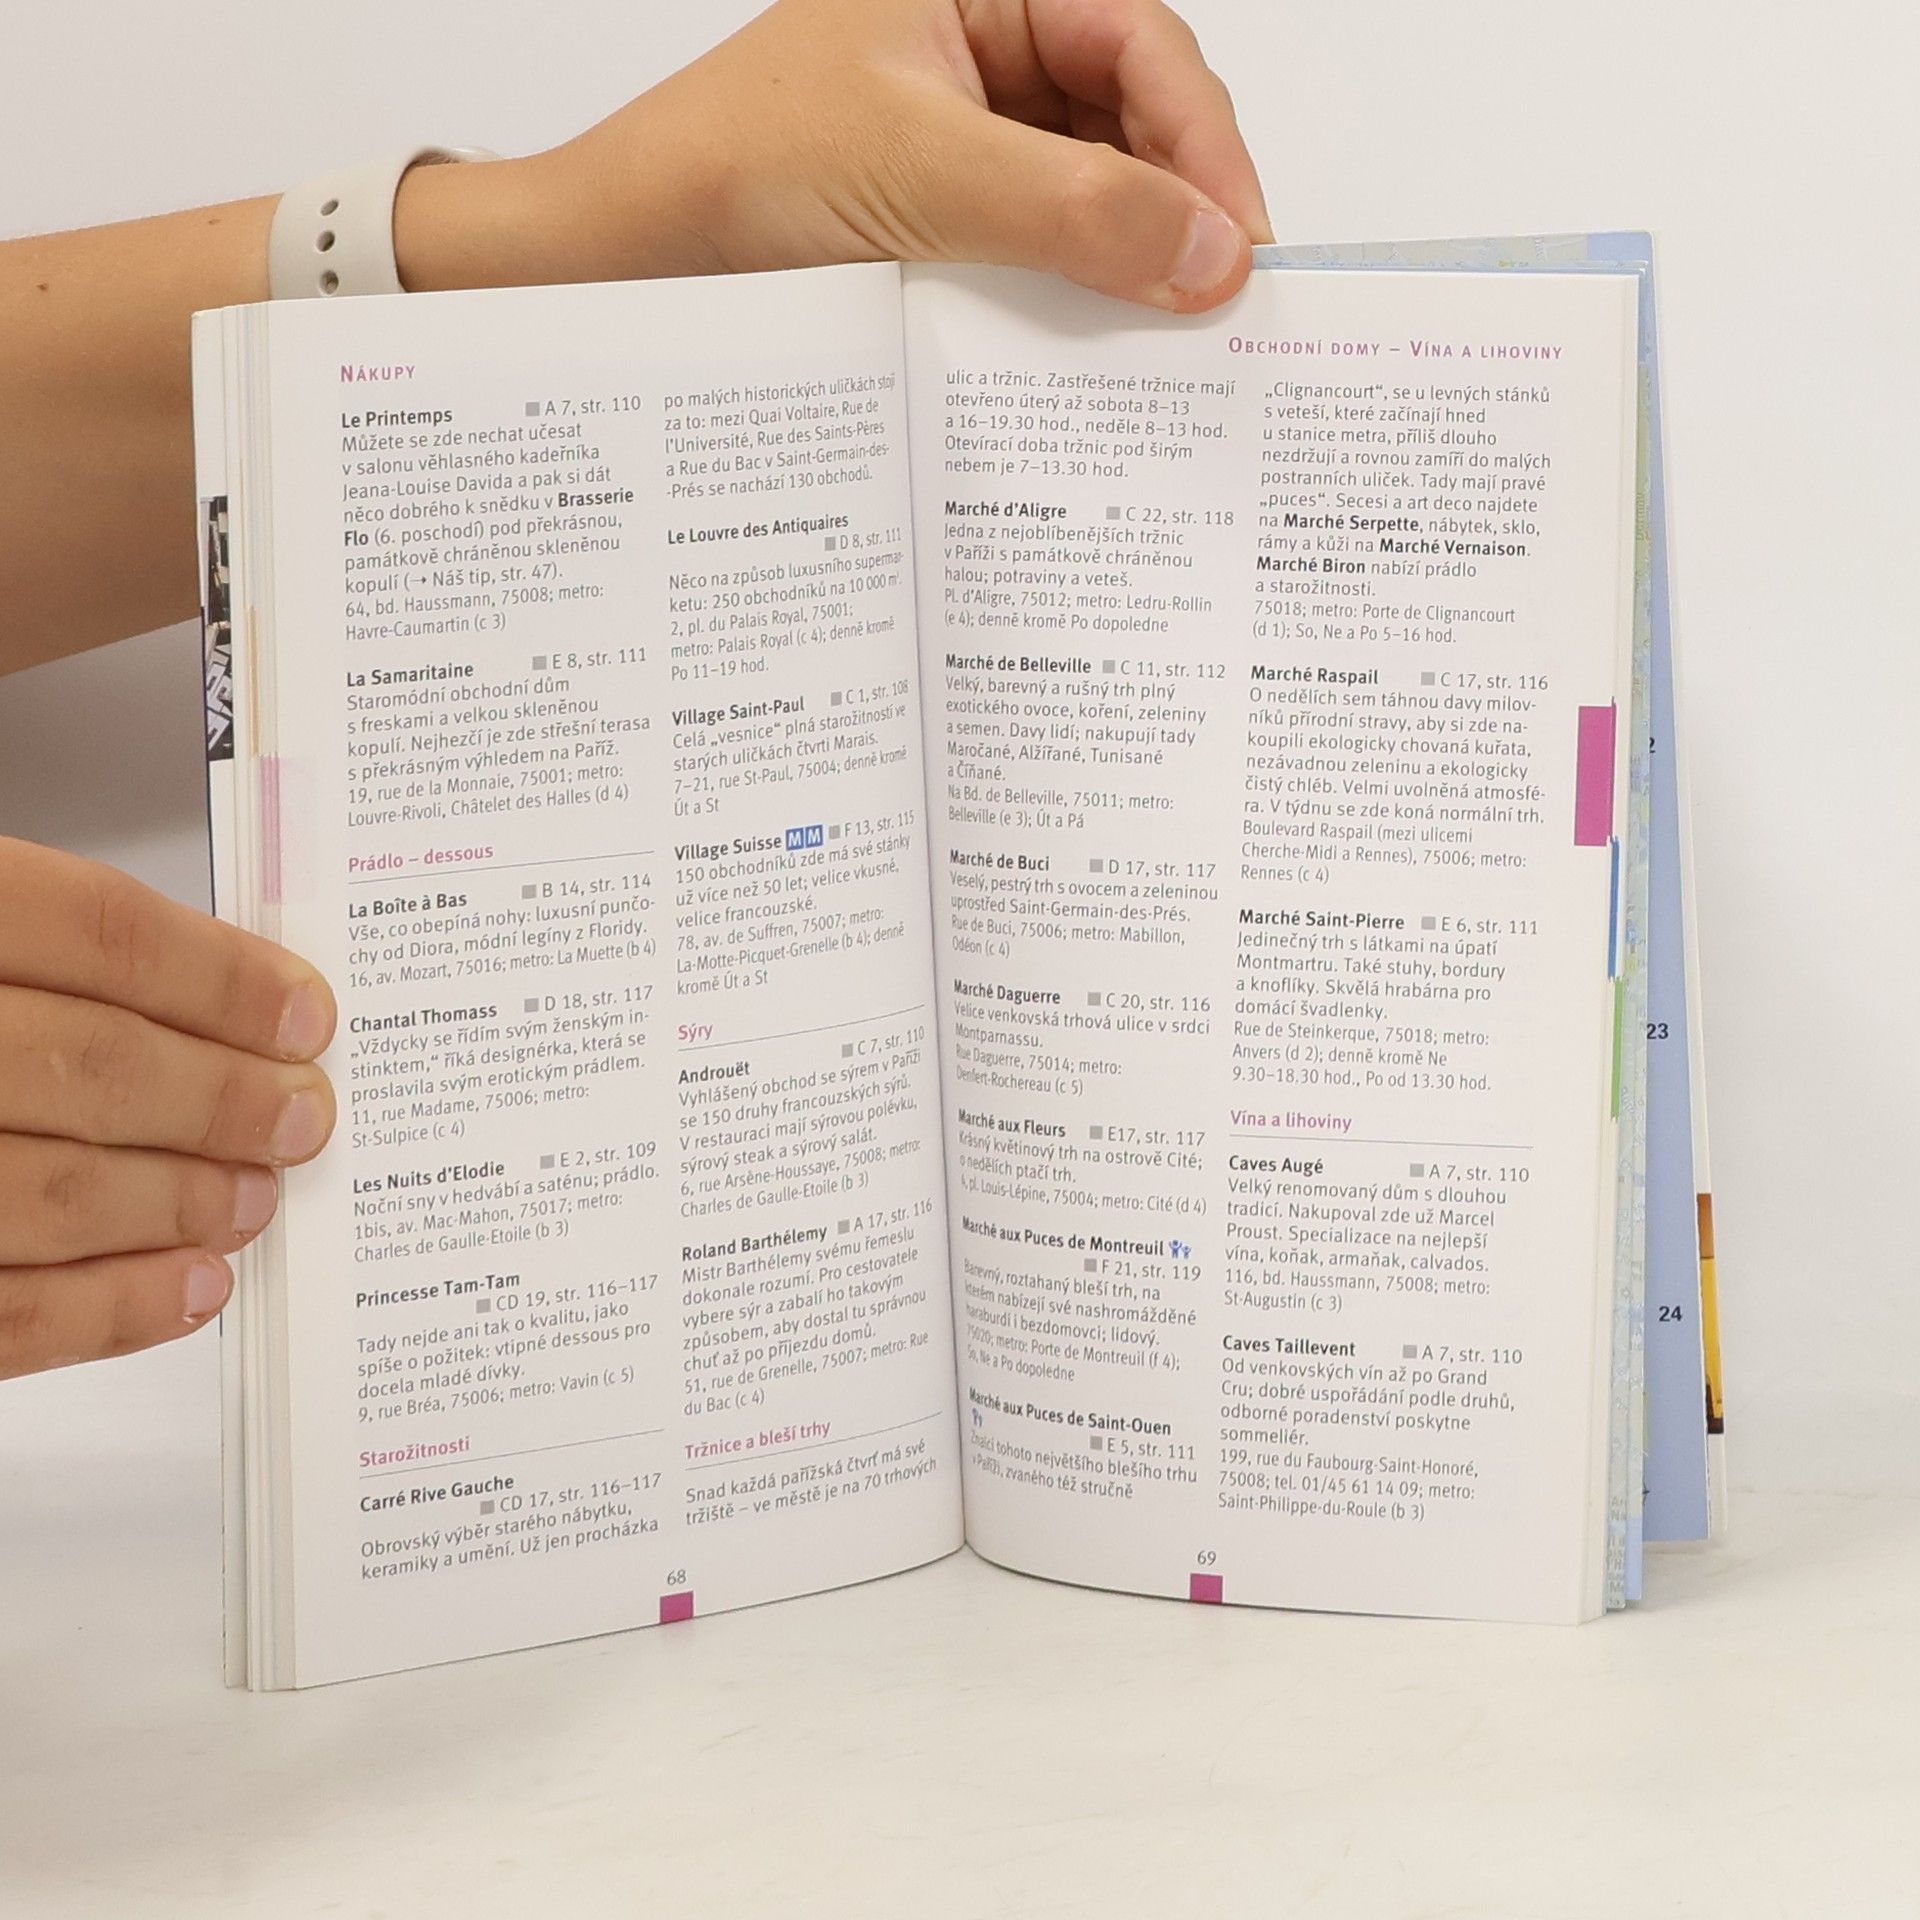 NÁKUPY
Le Printemps A 7, str. 110
Můžete se zde nechat učesat
v salonu věhlasného kadeřníka
Jeana-Louise Davida a pak si dát
něco dobrého k snědku v Brasserie
Flo (6. poschodí) pod překrásnou,
památkově chráněnou skleněnou
kopulí (→ Náš tip, str. 47).
64, bd. Haussmann, 75008; metro:
Havre-Caumartin (c 3)
La Samaritaine E 8, str. 111
Staromódní obchodní dům
s freskami a velkou skleněnou
kopulí. Nejhezčí je zde střešní terasa
s překrásným výhledem na Paříž.
19, rue de la Monnaie, 75001; metro:
Louvre-Rivoli, Châtelet des Halles (d 4)
Prádlo – dessous
La Boîte à Bas B 14, str. 114
Vše, co obepíná nohy: luxusní punčo-
chy od Diora, módní legíny z Floridy.
16, av. Mozart, 75016; metro: La Muette (b 4)
Chantal Thomass D 18, str. 117
„Vždycky se řídím svým ženským in-
stinktem,“ říká designérka, která se
proslavila svým erotickým prádlem.
11, rue Madame, 75006; metro:
St-Sulpice (c 4)
Les Nuits d'Elodie E 2, str. 109
Noční sny v hedvábí a saténu; prádlo.
1bis, av. Mac-Mahon, 75017; metro:
Charles de Gaulle-Etoile (b 3)
Princesse Tam-Tam
CD 19, str. 116–117
Tady nejde ani tak o kvalitu, jako
spíše o požitek: vtipné dessous pro
docela mladé dívky.
9, rue Bréa, 75006; metro: Vavin (c 5)
Starožitnosti
Carré Rive Gauche
CD 17, str. 116–117
Obrovský výběr starého nábytku,
keramiky a umění. Už jen procházka
po malých historických uličkách stojí
za to: mezi Quai Voltaire, Rue de
l'Université, Rue des Saints-Pères
a Rue du Bac v Saint-Germain-des-
-Prés se nachází 130 obchodů.
Le Louvre des Antiquaires
D 8, str. 111
Něco na způsob luxusního supermar-
ketu: 250 obchodníků na 10 000 m².
2, pl. du Palais Royal, 75001;
metro: Palais Royal (c 4); denně kromě
Po 11–19 hod.
Village Saint-Paul C 1, str. 108
Celá „vesnice“ plná starožitností ve
starých uličkách čtvrti Marais.
7–21, rue St-Paul, 75004; denně kromě
Út a St
Village Suisse MM F 13, str. 115
150 obchodníků zde má své stánky
už více než 50 let; velice vkusné,
velice francouzské.
78, av. de Suffren, 75007; metro:
La-Motte-Picquet-Grenelle (b 4); denně
kromě Út a St
Sýry
Androuët C 7, str. 110
Vyhlášený obchod se sýrem v Paříži
se 150 druhy francouzských sýrů.
V restauraci mají sýrovou polévku,
sýrový steak a sýrový salát.
6, rue Arsène-Houssaye, 75008; metro:
Charles de Gaulle-Etoile (b 3)
Roland Barthélemy A 17, str. 116
Mistr Barthélemy svému řemeslu
dokonale rozumí. Pro cestovatele
vybere sýr a zabalí ho takovým
způsobem, aby dostal tu správnou
chuť až po příjezdu domů.
51, rue de Grenelle, 75007; metro: Rue
du Bac (c 4)
Tržnice a bleší trhy
Snad každá pařížská čtvrť má své
tržiště – ve městě je na 70 trhových
68
OBCHODNÍ DOMY – VÍNA A LIHOVINY
ulic a tržnic. Zastřešené tržnice mají
otevřeno úterý až sobota 8–13
a 16–19.30 hod., neděle 8–13 hod.
Otevírací doba tržnic pod širým
nebem je 7–13.30 hod.
Marché d'Aligre C 22, str. 118
Jedna z nejoblíbenějších tržnic
v Paříži s památkově chráněnou
halou; potraviny a veteš.
Pl. d'Aligre, 75012; metro: Ledru-Rollin
(e 4); denně kromě Po dopoledne
Marché de Belleville C 11, str. 112
Velký, barevný a rušný trh plný
exotického ovoce, koření, zeleniny
a semen. Davy lidí; nakupují tady
Maročané, Alžířané, Tunisané
a Číňané.
Na Bd. de Belleville, 75011; metro:
Belleville (e 3); Út a Pá
Marché de Buci D 17, str. 117
Veselý, pestrý trh s ovocem a zeleninou
uprostřed Saint-Germain-des-Prés.
Rue de Buci, 75006; metro: Mabillon,
Odéon (c 4)
Marché Daguerre C 20, str. 116
Velice venkovská trhová ulice v srdci
Montparnassu.
Rue Daguerre, 75014; metro:
Denfert-Rochereau (c 5)
Marché aux Fleurs E17, str. 117
Krásný květinový trh na ostrově Cité;
o nedělích ptačí trh.
4, pl. Louis-Lépine, 75004; metro: Cité (d 4)
Marché aux Puces de Montreuil
F 21, str. 119
Barevný, roztahaný bleší trh, na
kterém nabízejí své nashromážděné
haraburdí i bezdomovci; lidový.
75020; metro: Porte de Montreuil (f 4);
So, Ne a Po dopoledne
Marché aux Puces de Saint-Ouen
E 5, str. 111
Znalci tohoto největšího blešího trhu
v Paříži, zvaného též stručně
„Clignancourt“, se u levných stánků
s veteší, které začínají hned
u stanice metra, příliš dlouho
nezdržují a rovnou zamíří do malých
postranních uliček. Tady mají pravé
„puces“. Secesi a art deco najdete
na Marché Serpette, nábytek, sklo,
rámy a kůži na Marché Vernaison.
Marché Biron nabízí prádlo
a starožitnosti.
75018; metro: Porte de Clignancourt
(d 1); So, Ne a Po 5–16 hod.
Marché Raspail C 17, str. 116
O nedělích sem táhnou davy milov-
níků přírodní stravy, aby si zde na-
koupili ekologicky chovaná kuřata,
nezávadnou zeleninu a ekologicky
čistý chléb. Velmi uvolněná atmosfé-
ra. V týdnu se zde koná normální trh.
Boulevard Raspail (mezi ulicemi
Cherche-Midi a Rennes), 75006; metro:
Rennes (c 4)
Marché Saint-Pierre E 6, str. 111
Jedinečný trh s látkami na úpatí
Montmartru. Také stuhy, bordury
a knoflíky. Skvělá hrabárna pro
domácí švadlenky.
Rue de Steinkerque, 75018; metro:
Anvers (d 2); denně kromě Ne
9.30–18.30 hod., Po od 13.30 hod.
Vína a lihoviny
Caves Augé A 7, str. 110
Velký renomovaný dům s dlouhou
tradicí. Nakupoval zde už Marcel
Proust. Specializace na nejlepší
vína, koňak, armaňak, calvados.
116, bd. Haussmann, 75008; metro:
St-Augustin (c 3)
Caves Taillevent A 7, str. 110
Od venkovských vín až po Grand
Cru; dobré uspořádání podle druhů,
odborné poradenství poskytne
sommeliér.
199, rue du Faubourg-Saint-Honoré,
75008; tel. 01/45 61 14 09; metro:
Saint-Philippe-du-Roule (b 3)
69
23
24